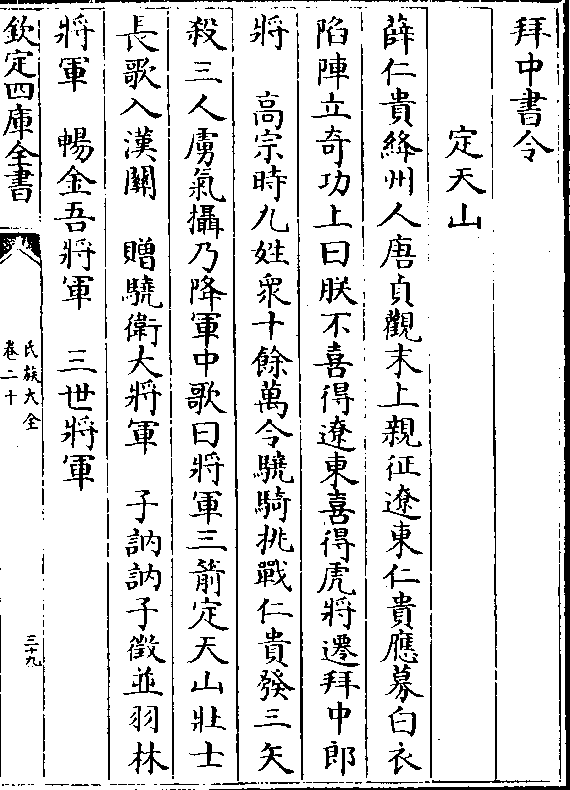 拜中書令
定天山
薛仁貴絳州人唐貞觀末上親征遼東仁貴應募白衣
陷陣立奇功上曰朕不喜得遼東喜得虎將遷拜中郎
將　高宗時九姓眾十餘萬令驍騎挑戰仁貴發三矢
殺三人虜氣攝乃降軍中歌曰將軍三箭定天山壯士
長歌入漢關　贈驍衛大將軍　子訥訥子徵並羽林
將軍　暢金吾將軍　三世將軍
欽定四庫全書
氏族大全
卷二十
三十九